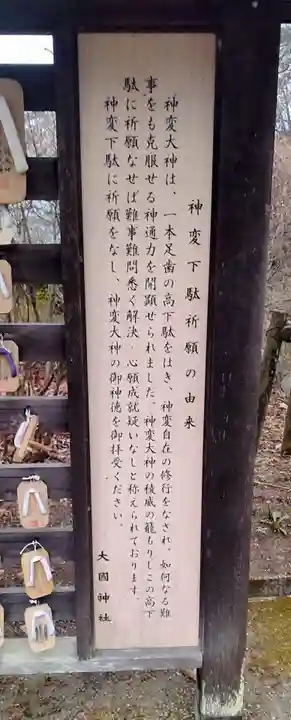 神変下駄祈願の由来
神変大神は、一本足歯の高下駄をはき、神変自在の修行をなされ、如何なる難
事をも克服せる神通力を開顕せられました。神変大神の稜威の籠もりしこの高下
駄に祈願なせば難事難問悉く解決、心願成就疑いなしと称えられております。
神変下駄に祈願をなし、神変大神の御神徳を御拝受ください。
大國神社